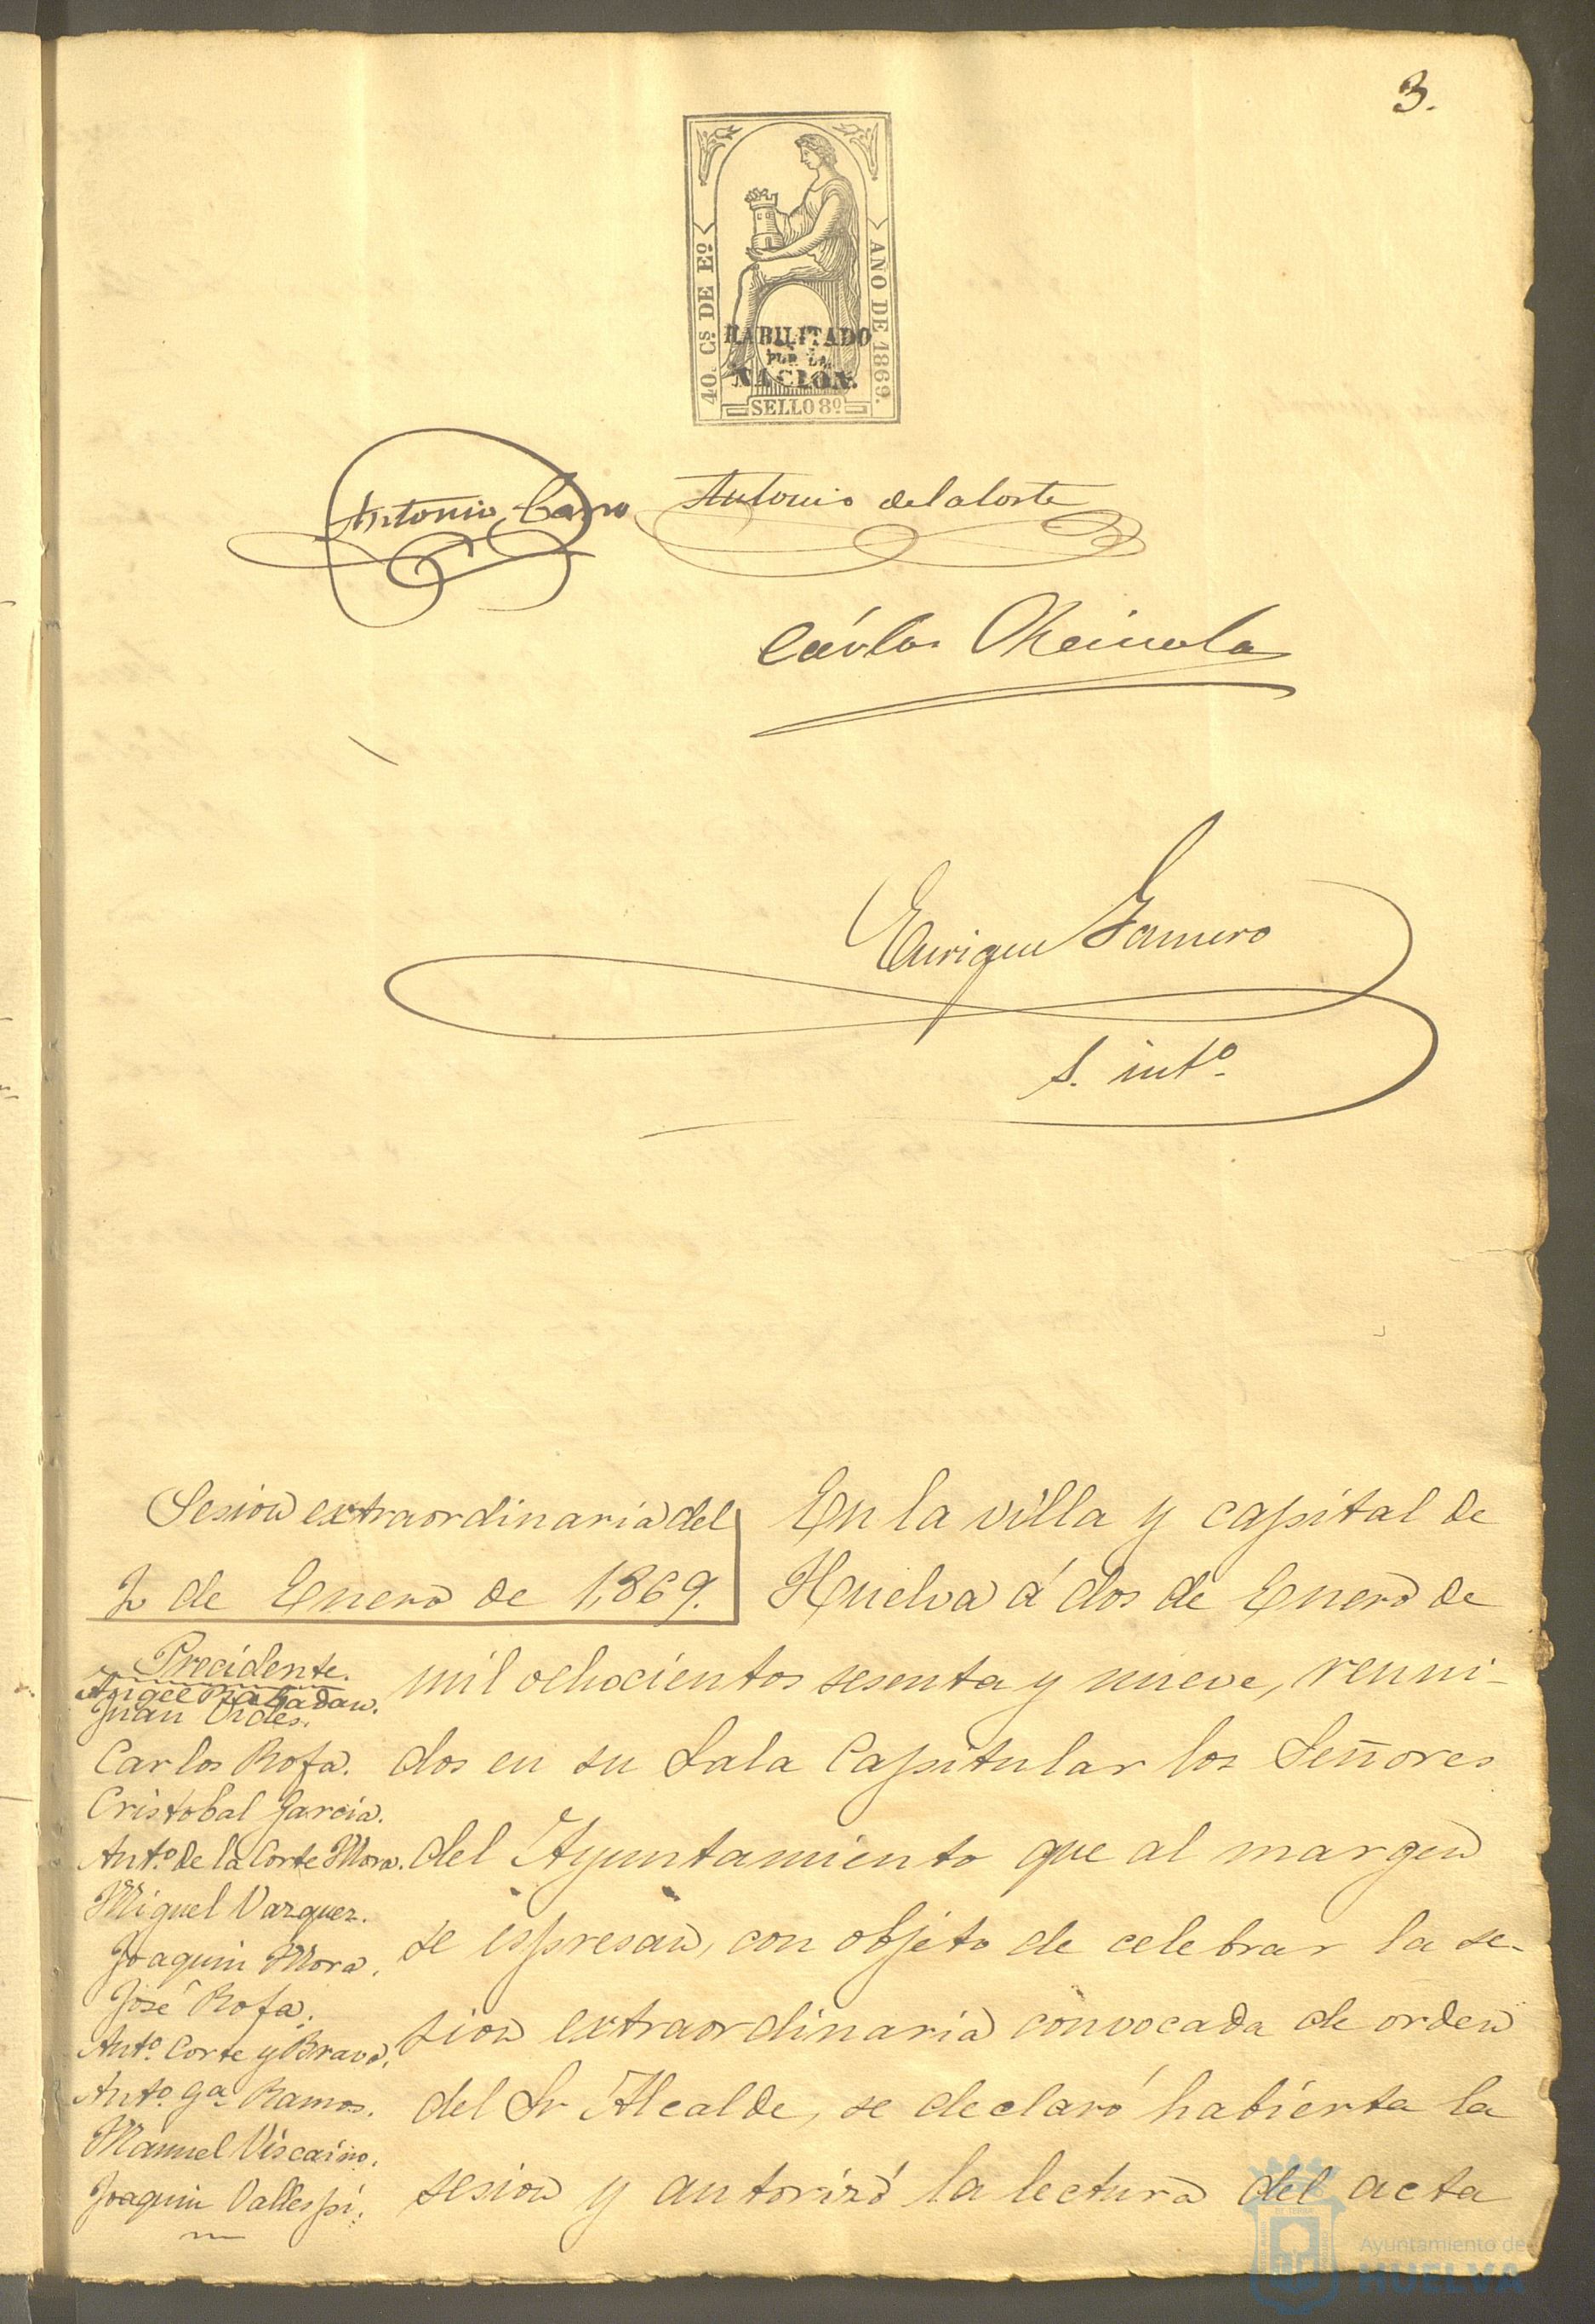 3.
40. Cs. DE Eo.
AÑO DE 1869.
HABILITADO
POR LA
NACION.
SELLO 8º
Antonio Carro Antonio de la Corte
Cárlos
Enrique Gamero
S. intº.
Sesion extraordinaria del
2 de Enero de 1,869.
Precidente.
Juan Vides.
Carlos Rofa.
Cristobal Garcia.
Antº. de la Corte Mora.
Miguel Vazquez.
Joaquin Mora.
José Rofa.
Antº. Corte y Bravo.
Antº. Gª. Ramos.
Manuel Viscaino.
Joaquin Vallespi.
En la villa y capital de
Huelva á dos de Enero de
mil ochocientos sesenta y nueve, reuni-
dos en su Sala Capitular los Señores
del Ayuntamiento que al margen
se espresan, con objeto de celebrar la se-
sion extraordinaria convocada de orden
del Sr Alcalde, se declaró habierta la
sesion y autorizó la lectura del acta
Ayuntamiento de
HUELVA